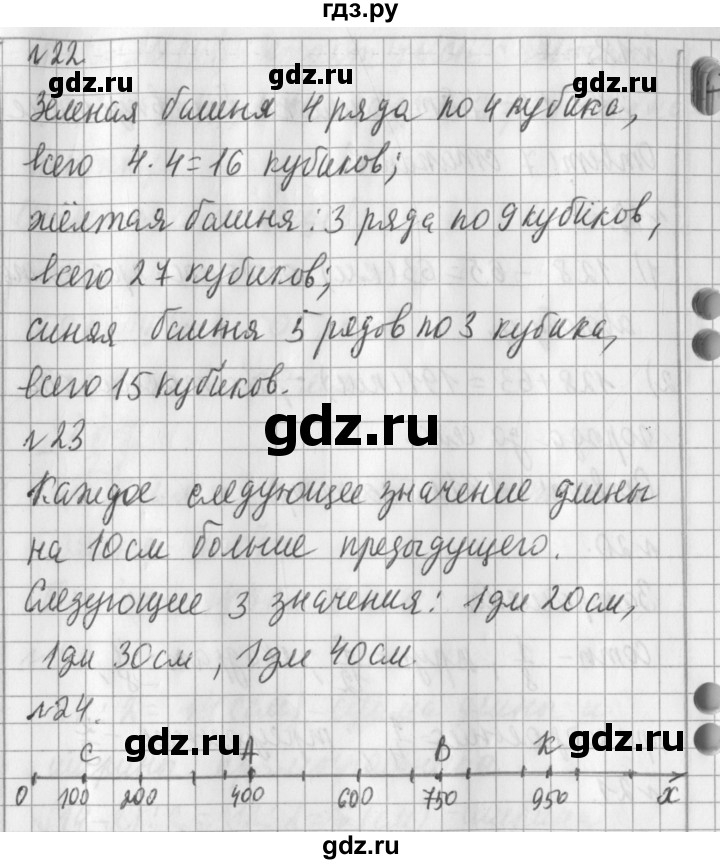 гдз.ру
№22
gdz.ru gdz.ru gdz.ru
Зеленая башня 4 ряда по 4 кубика,
всего 4·4=16 кубиков;
жёлтая башня: 3 ряда по 9 кубиков,
всего 27 кубиков;
синяя башня 5 рядов по 3 кубика,
всего 15 кубиков.
gdz.ru
№23
Каждое следующее значение длины
на 10см больше предыдущего.
Следующие 3 значения: 1дм 20см,
1дм 30см, 1дм 40см.
№24.
gdz.ru gdz.ru
C A B K
0 100 200 400 600 750 950 x
gdz.ru